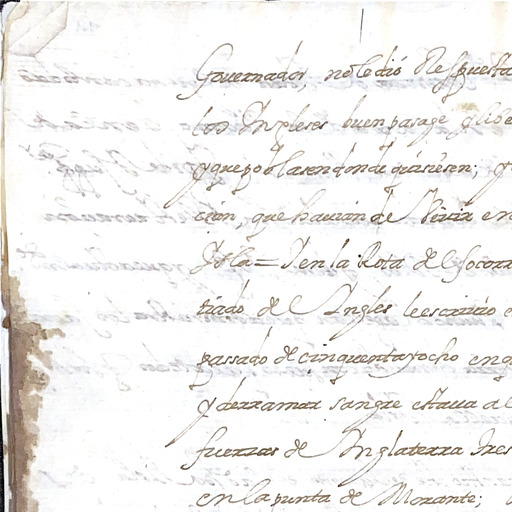 Gouernador, no le dió Respuesta
los Ingleses buen pasage y libe
y que poblasen donde quisiesen; y
cion, que hauian de Viuir en
Isla = Y en la Rota de el socorr
tiado de el Ingles le escriuio e
passado de cinquenta y ocho en q
y derramar sangre estaua al
fuerzas de Inglaterra Ires
en la punta de Morante;